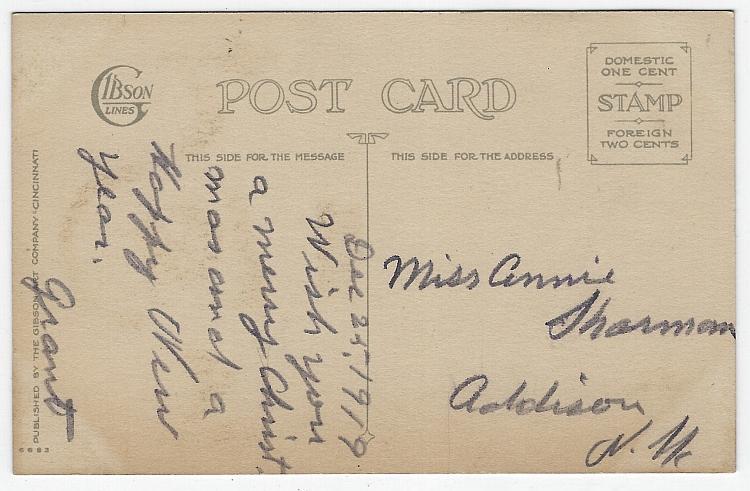 GIBSON
LINES
POST CARD
DOMESTIC
ONE CENT
STAMP
FOREIGN
TWO CENTS
THIS SIDE FOR THE MESSAGE
THIS SIDE FOR THE ADDRESS
Dec 25, 1919
Wish you
a merry Christ
mas and a
Happy New
year.
Grant
Miss Annie
Sharman
Addison
N. Yk
PUBLISHED BY THE GIBSON ART COMPANY CINCINNATI
6683